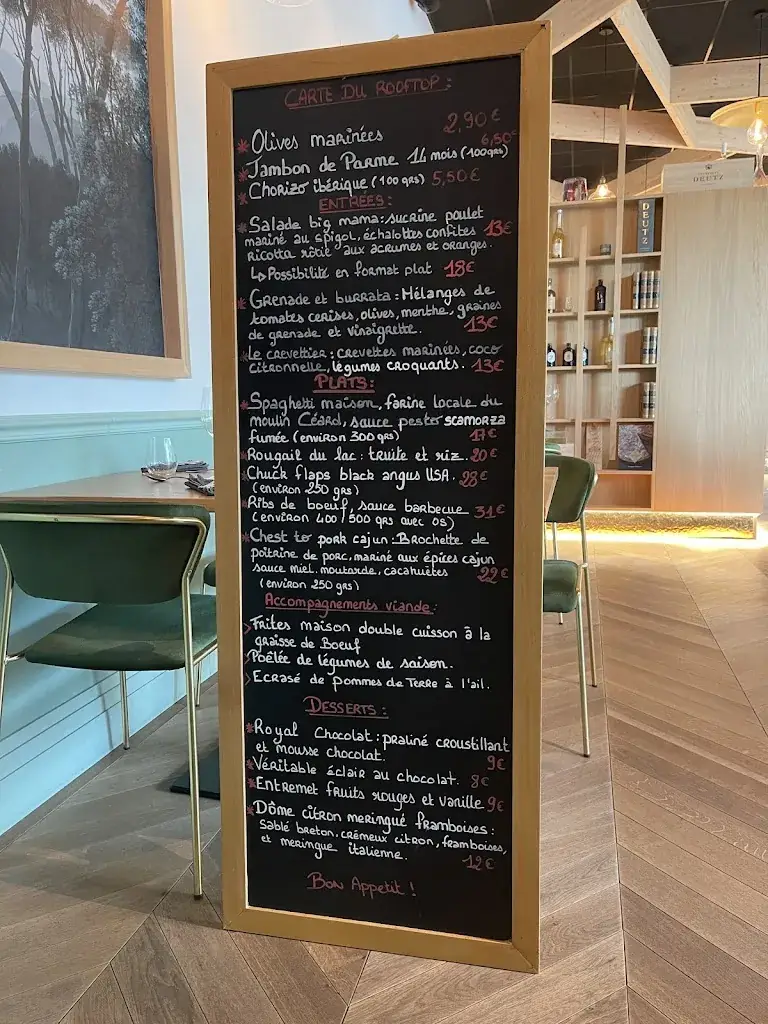 CARTE DU ROOFTOP :
* Olives marinées 2,90€
* Jambon de Parme 14 mois (100grs) 6,50€
* Chorizo ibérique (100 grs) 5,50€
ENTRÉES :
* Salade big mama : sucrine poulet
mariné au spigol, échalottes confites 13€
ricotta rôtie aux acrumes et oranges.
↳ Possibilité en format plat 18€
* Grenade et burrata : Mélanges de
tomates cerises, olives, menthe, graines
de grenade et vinaigrette. 13€
* Le crevettier : crevettes marinées, coco
citronnelle, légumes croquants. 13€
PLATS :
* Spaghetti maison, farine locale du
moulin Céard, sauce pesto scamorza
fumée (environ 300 grs) 17€
* Rougail du lac : truite et riz. 20€
* Chuck flaps black angus USA. 28€
(environ 250 grs)
* Ribs de boeuf, sauce barbecue 31€
(environ 400/500 grs avec os)
* Chest to pork cajun : Brochette de
poitrine de porc, mariné aux épices cajun
sauce miel. moutarde, cacahuètes 22€
(environ 250 grs)
Accompagnements viande :
> Frites maison double cuisson à la
graisse de Boeuf
> Poêlée de légumes de saison.
> Ecrasé de pommes de Terre à l'ail.
DESSERTS :
* Royal Chocolat : praliné croustillant
et mousse chocolat. 9€
* Véritable éclair au chocolat. 8€
* Entremet fruits rouges et vanille 9€
* Dôme citron meringué framboises :
Sablé breton, crémeux citron, framboises,
et meringue italienne. 12€
Bon Appetit !
DEUTZ
DEUTZ